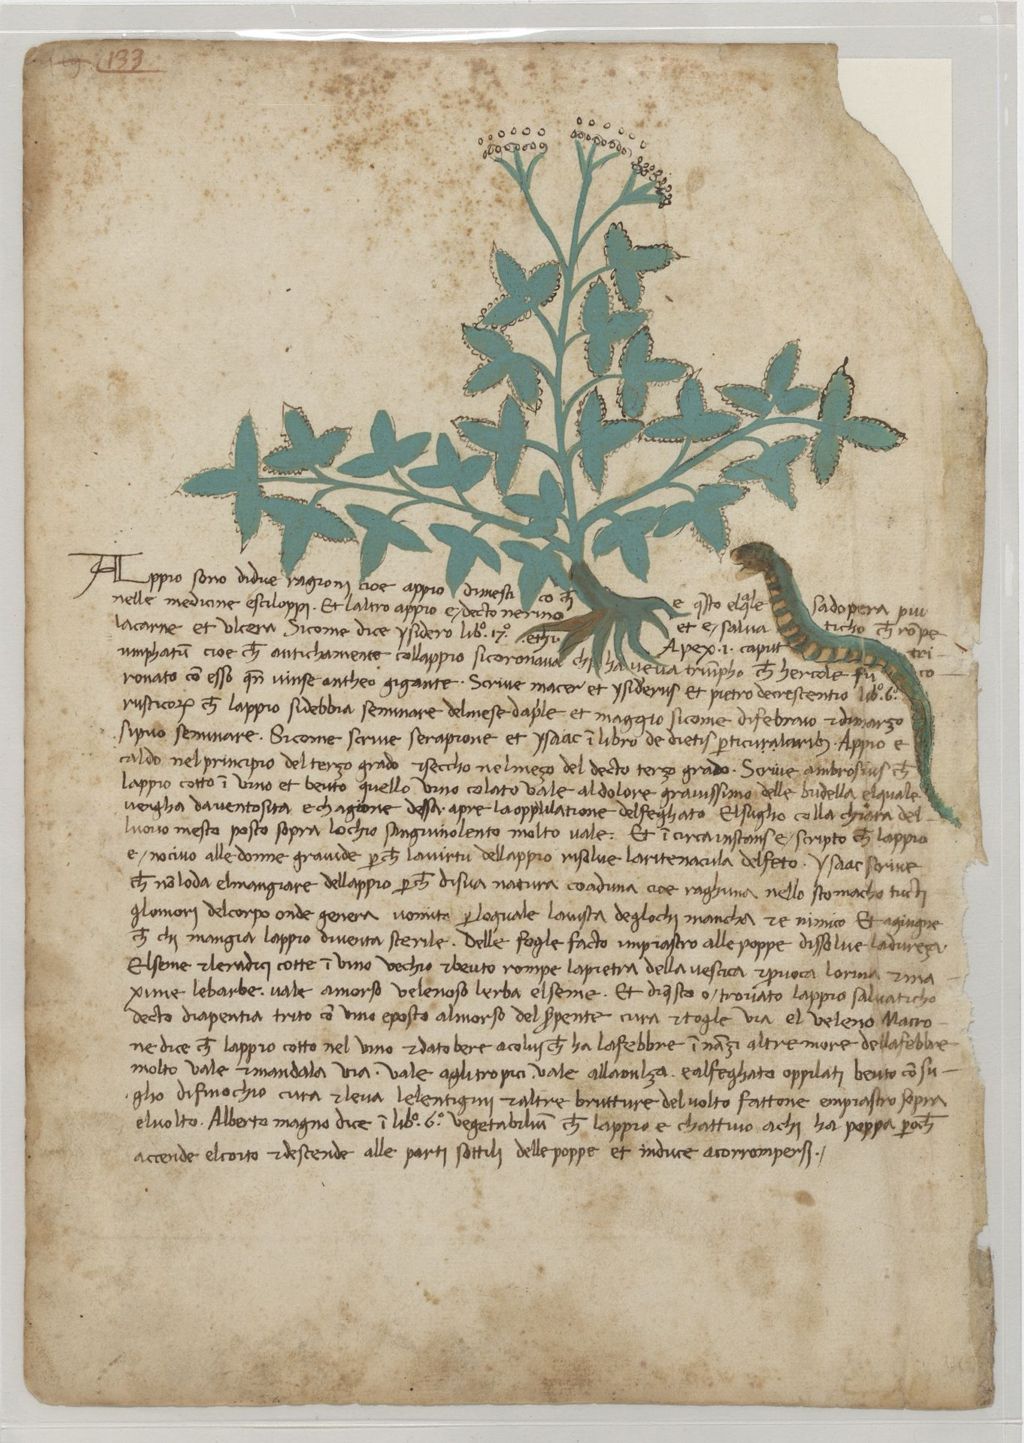 133
Appio sono didue ragioni cioe appio dimesti co cħ e q̄sto elq̄le sadopera piu
nelle medicine esciloppi. Et laltro appio e/ decto nerino et e/ salua ticho cħ rōpe
lacarne et ulcera Sicome dice ysidero lib.º 17.º Apex .1. caput tri
umphatū cioe cħ antichamente collappio sicoronaua chi haueua triūpho cħ hercole fu co
ronato cō esso qn̄ uinse antheo gigante. Scriue macer et ysiderus et pietro decrescentio lib.º 6.º
rusticorꝝ cħ lappio sidebbia seminare delmese dap̄le et maggio sicome difebraio ⁊ dimarzo
sipuo seminare. Sicome scriue serapione et ysaac ī libro de dietis ꝑticularibꝫ. Appio e
caldo nel principio del terzo grado ⁊ seccho nelmezo del decto terzo grado. Scriue ambrosius cħ
lappio cotto ī uino et beuto quello uino colato uale al dolore grauissimo delle budella elquale
uengha dauentosita e chagione dessa. apre la oppilatione delfeghato Elsugho colla chiara del
luouo mesto posto sopra lochio sanguinolento molto uale: Et ī circa instans e/ scripto cħ lappio
e/ nociuo alle donne grauide ꝑ cħ lauirtu dellappio risolue laritenacula delfeto. ysaac scriue
cħ nō loda elmangiare dellappio ꝑ cħ disua natura coaduna cioe raghuna nello stomacho tucti
glomori delcorpo onde genera uomito ꝑ loquale lauista deglochi mancha ⁊ e nimico Et agiugne
cħ chi mangia lappio diuenta sterile. Delle foglie facto impiastro alle poppe dissolue ladureza.
Elseme ⁊ leradici cotte ī uino uechio ⁊ beuto rompe lapietra della uescica ⁊ ꝓuoca lorina ⁊ ma
xime lebarbe. uale amorso uelenoso lerba elseme. Et diq̄sto o/ trouato lappio saluaticho
decto diapentia trito cō uino eposto almorso del s̄pente cura ⁊ togle uia el ueleno Macro
ne dice cħ lappio cotto nel uino ⁊ dato bere a colui cħ ha lafebbre ī nāzi altremore dellafebbre
molto uale ⁊ mandala uia. uale aglitropici uale allamilza. e alfeghato oppilati beuto cō su
gho difinochio cura ⁊ leua lelentigini ⁊ altre brutture deluolto fattone empiastro sopra
eluolto. Alberto magno dice ī lib.º 6.º uegetabiliū cħ lappio e chattiuo achi ha poppa ꝑ cħ
accende elcoito ⁊ descende alle parti sottili delle poppe et induce acorrompersi./